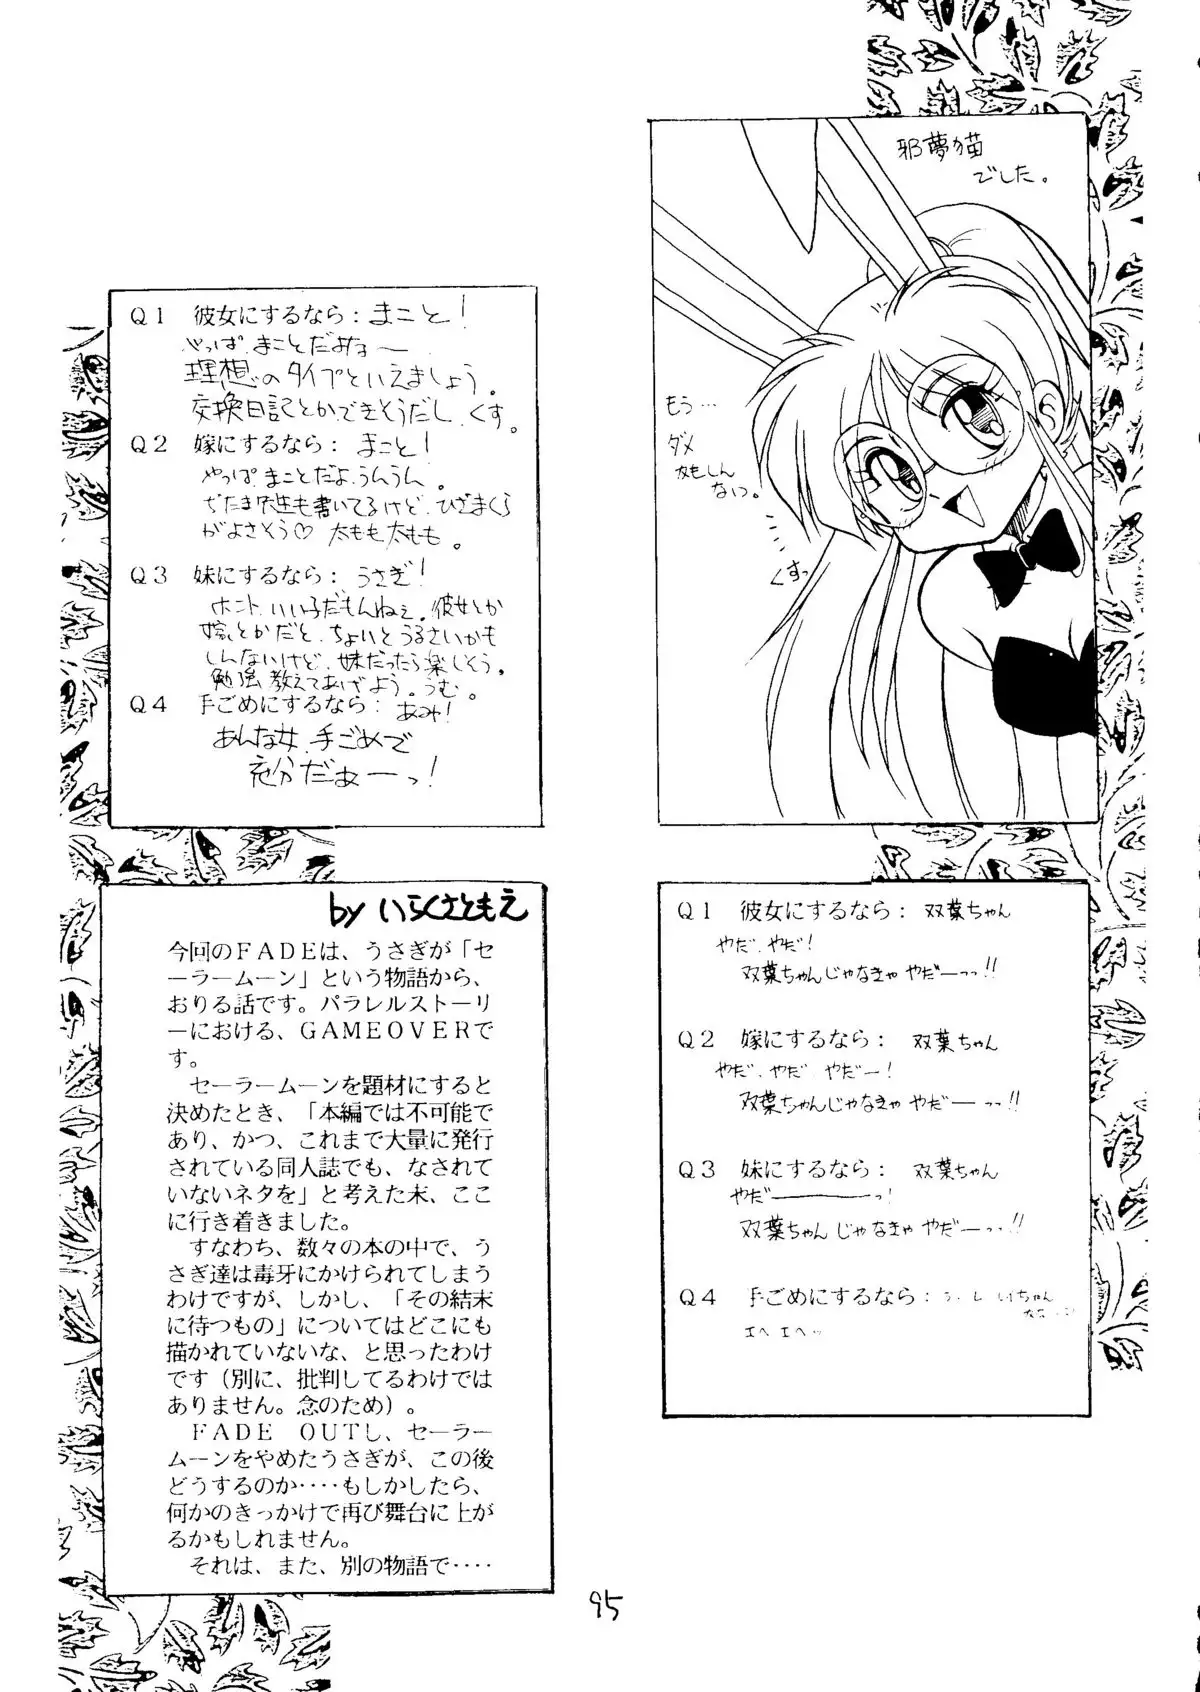 邪夢猫
でした。
もう…
ダメ
かもしん
ない。
くすっ
Q1 彼女にするなら: まこと!
やっぱ、まことだよな〜
理想のタイプといえましょう。
交換日記とかできそうだし、くす。
Q2 嫁にするなら: まこと!
やっぱまことだよ、うんうん。
Q3 妹にするなら: うさぎ!
ホント、いい子だもんねぇ。彼女とか
嫁とかだと、ちょいとうるさいかも
しんないけど、妹だったら楽しそう。
勉強教えてあげよう。うむ。
Q1 彼女にするなら: 双葉ちゃん
やだ、やだ!
双葉ちゃんじゃなきゃ やだーっっ!!
Q2 嫁にするなら: 双葉ちゃん
やだ、やだ やだー!
双葉ちゃんじゃなきゃ やだーっっ!!
Q3 妹にするなら: 双葉ちゃん
やだ———っ!
双葉ちゃんじゃなきゃ やだーっっ!!
by いらくさともえ
今回のFADEは、うさぎが「セ
ーラームーン」という物語から、
おりる話です。パラレルストーリ
ーにおける、GAMEOVERで
す。
セーラームーンを題材にすると
決めたとき、「本編では不可能で
あり、かつ、これまで大量に発行
されている同人誌でも、なされて
いないネタを」と考えた末、ここ
に行き着きました。
すなわち、数々の本の中で、う
さぎ達は毒牙にかけられてしまう
わけですが、しかし、「その結末
に待つもの」についてはどこにも
描かれていないな、と思ったわけ
です(別に、批判してるわけでは
ありません。念のため)。
FADE OUTし、セーラー
ムーンをやめたうさぎが、この後
どうするのか‥‥もしかしたら、
何かのきっかけで再び舞台に上が
るかもしれません。
それは、また、別の物語で‥‥
95